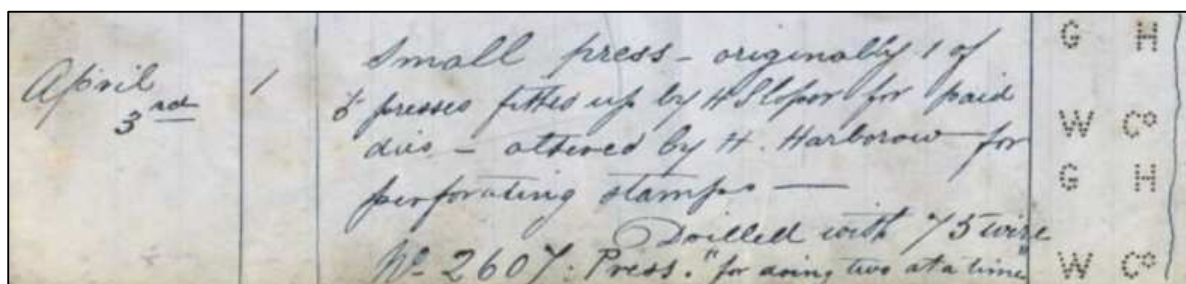 April
3rd
1
Small press - originally 1 of
5 presses fitted up by H Sloper for paid
dies - altered by H. Harborow for
perforating stamps —
Drilled with 75 wire
No 2607. Press. "for doing two at a time"
G H
W Co
G H
W Co